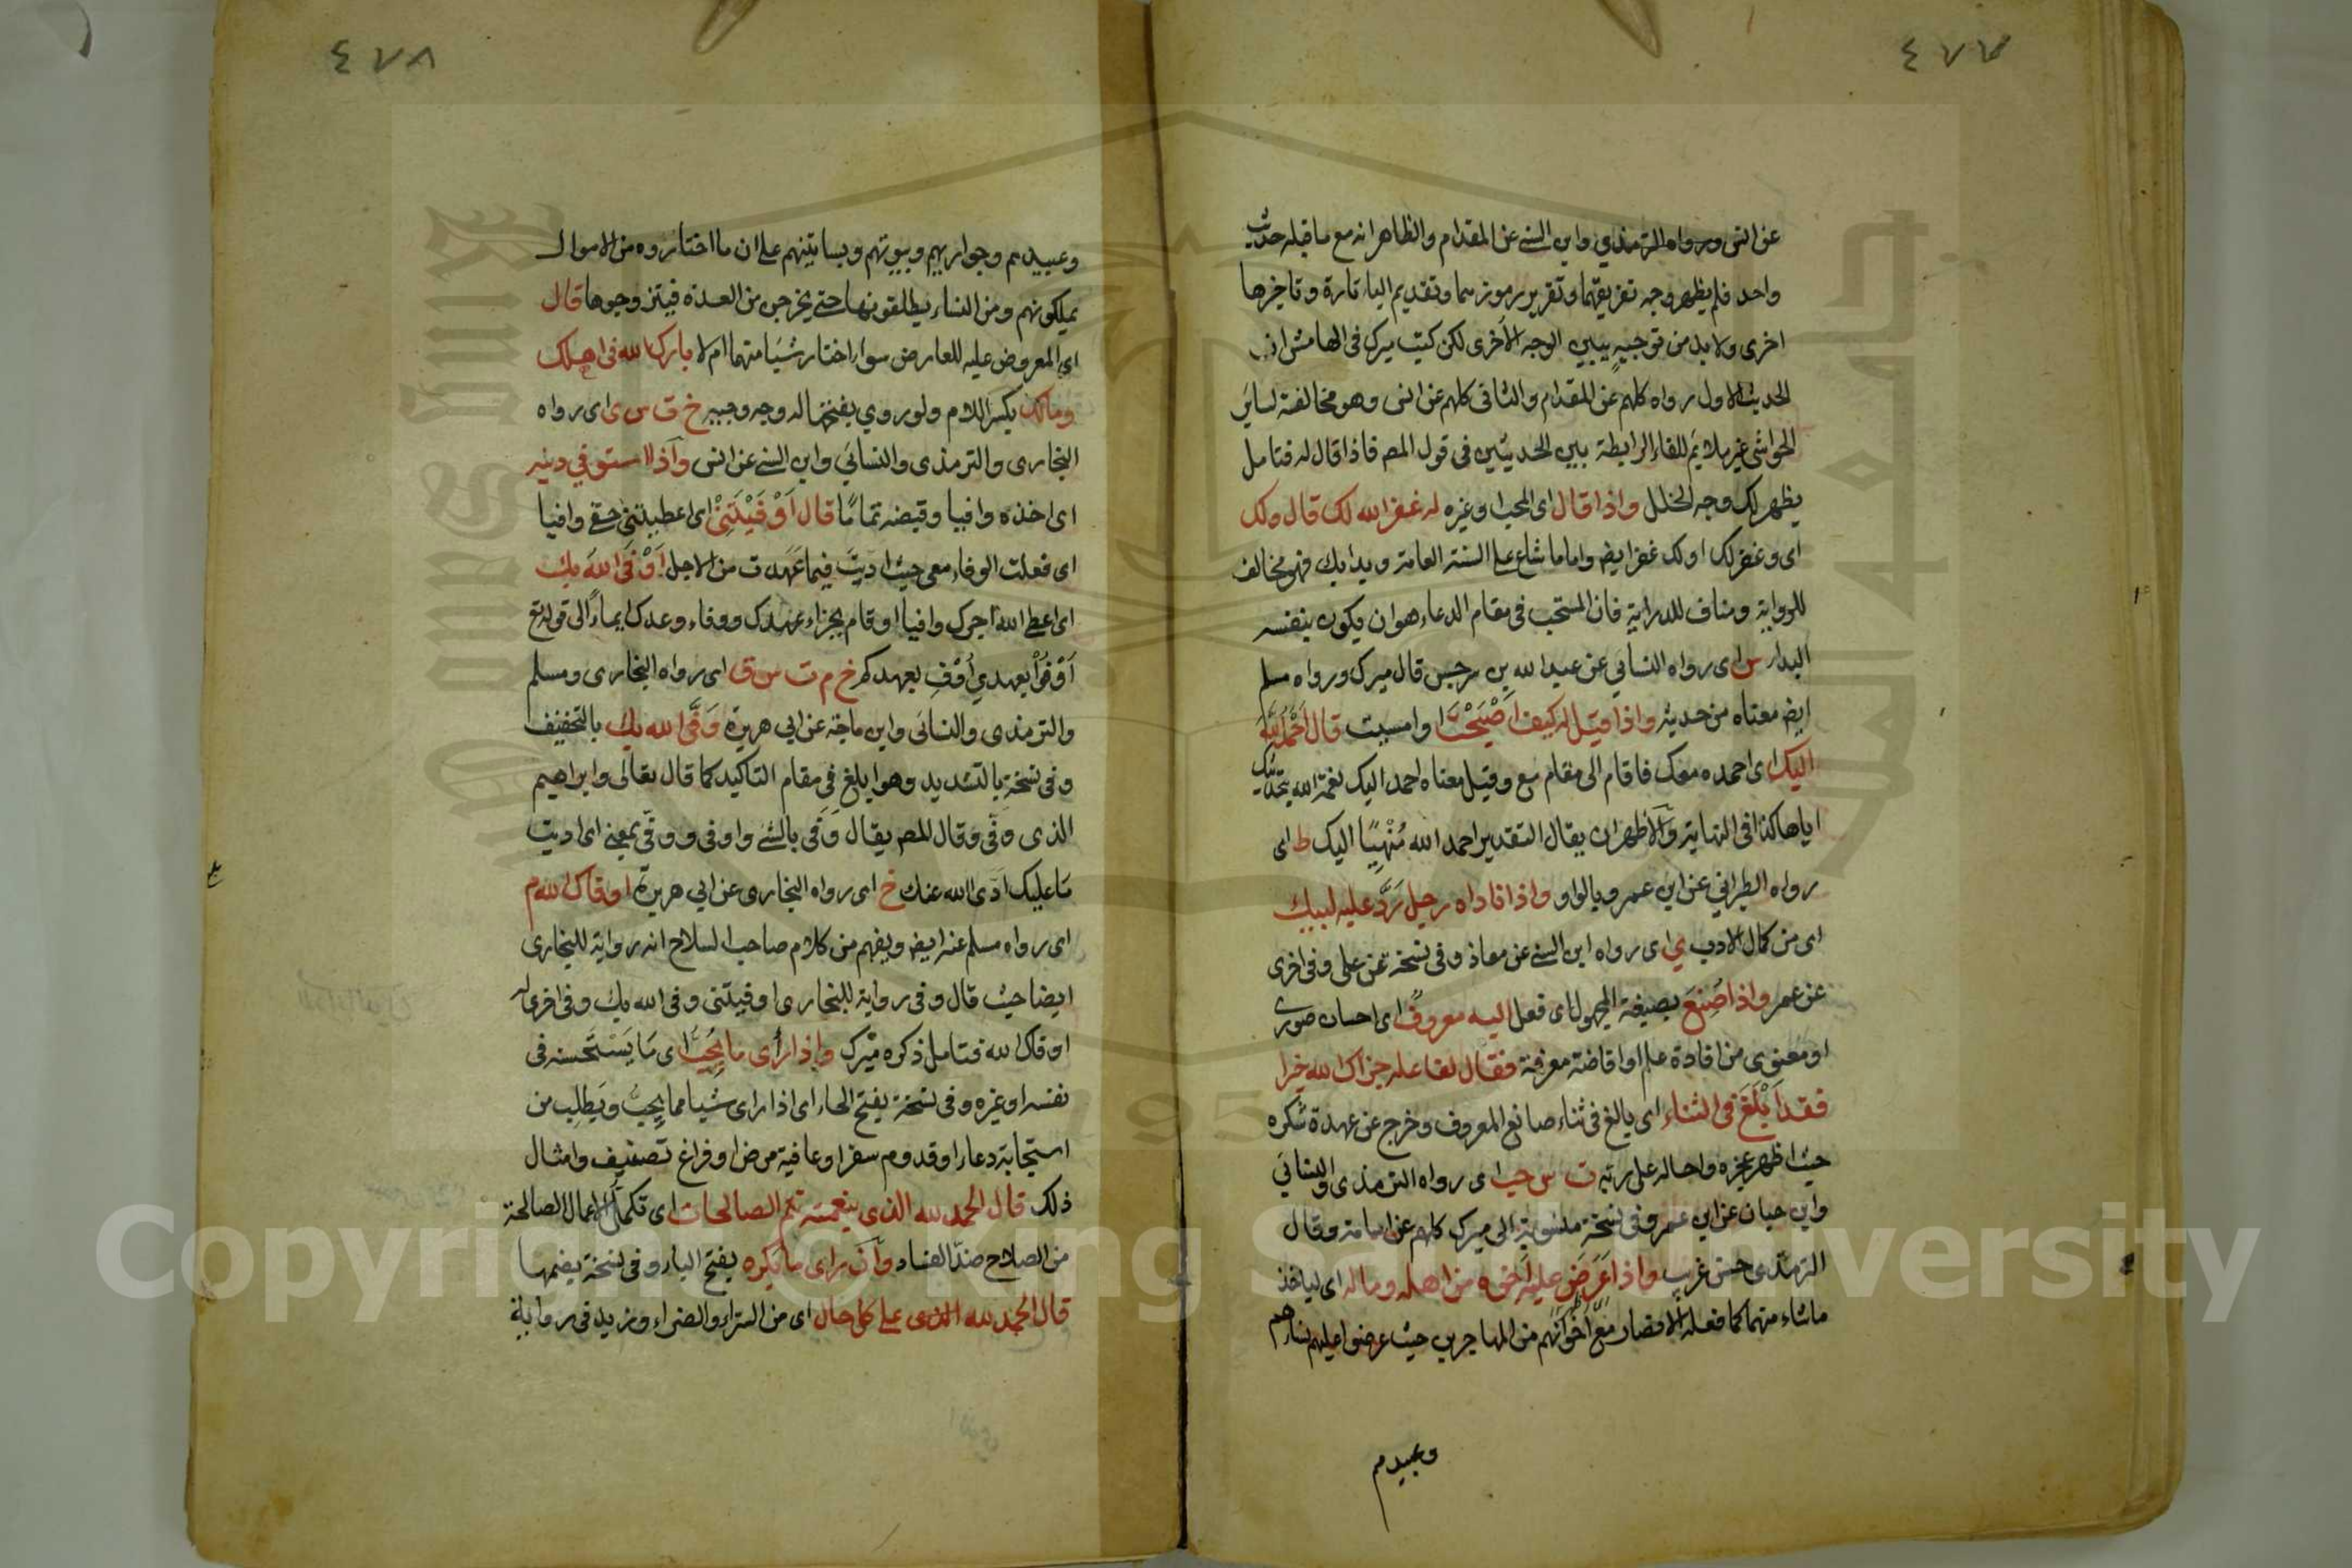 ٤٧٧
عن انس ورواه الترمذي وابن السني عن المقدام والظاهر انه مع ما قبله حديث
واحد فلم يظهر وجه تفريقهما وتقرير رموزهما وتقديم الياء تارة وتاخيرها
اخرى ولا بد من توجيه يبين الوجه الاخرى لكن كتب ميرك في الهامش ان
الحديث الاول رواه كلهم عن المقدام والثاني كلهم عن انس وهو مخالفة لسائر
الحواشي غير ملايم للفاء الرابطة بين الحديثين في قول المص فاذا قال له فتامل
يظهر لك وجه الخلل واذا قال اي المحب او غيره له غفر الله لك قال ولك
اي وغفر لك او لك غفر ايض واما ما شاع على السنة العامة وبدا بك فهو مخالف
للرواية ومناف للدراية فان المستحب في مقام الدعاء هو ان يكون بنفسه
البدا س اي رواه النسائي عن عبد الله بن سرجس قال ميرك ورواه مسلم
ايض معناه من حديثه واذا قيل له كيف اَصْبَحْتَ او امسيت قال اَحْمَدُ اللّٰهَ
اليك اي احمده معك فاقام الى مقام مع وقيل معناه احمد اليك نعمة الله بتحديثك
اياها كذا في النهاية والاظهر ان يقال التقدير احمد الله مُنْهِيًا اليك ط اي
رواه الطبراني عن ابن عمرو بالواو واذا ناداه رجل رَدَّ عليه لبيك
اي من كمال الادب ي اي رواه ابن السني عن معاذ وفي نسخة عن علي وفي اخرى
عن عمر واذا صُنِعَ بصيغة المجهول اي فعل اليه معروفٌ اي احسان صوري
او معنوي من افادة علم او افاضة معرفة فقال لفاعله جزاك الله خيرا
فقد اَبْلَغَ في الثناء اي بالغ في ثناء صانع المعروف وخرج عن عهدة شكره
حيث اظهر عجزه واحاله على ربه ت س حب اي رواه الترمذي والنسائي
وابن حبان عن ابن عمر وفي نسخة منسوبة الى ميرك كلهم عن اسامة وقال
الترمذي حسن غريب واذا عَرَضَ عليه اَخُوه من اهله وماله اي لياخذ
ما شاء منهما كما فعله الانصار مع اخوانهم من المهاجرين حيث عرضوا عليهم نساءهم
وعبيدهم
٤٧٨
وعبيدهم وجواريهم وبيوتهم وبساتينهم على ان ما اختاروه من الاموال
يملكونهم ومن النساء يطلقونها حتى يخرجن من العدة فيتزوجوها قال
اي المعروض عليه للعارض سواء اختار شيًا منهما ام لا بارك الله في اهلك
ومالك بكسر اللام ولو روي بفتحها له وجه وجيه خ ت س ى اي رواه
البخاري والترمذي والنسائي وابن السني عن انس واذا استوفي دينه
اي اخذه وافيا وقبضه تمامًا قال اَوْفَيْتَنِيْ اي اعطيتني حقي وافيا
اي فعلت الوفاء معي حيث اديت فيما عَهدت من الاجل اَوْفَى اللهُ بك
اي اعطى الله اجرك وافيا او قام بجزاء عهدك ووفاء وعدك ايماءً الى قوله تع
اَوْفُوْا بعهدي اُوْفِ بعهدكم خ م ت س ق اي رواه البخاري ومسلم
والترمذي والنسائي وابن ماجة عن ابي هريرة وَفَى الله بك بالتخفيف
وفي نسخة بالتشديد وهو ابلغ في مقام التاكيد كما قال تعالى وابراهيم
الذي وفّى وقال المص يقال وَفى بالشي واوفى ووفّى بمعنى اي اديت
ما عليك ادى الله عنك خ اي رواه البخاري عن ابي هريرة اوفاك الله م
اي رواه مسلم عنه ايض ويفهم من كلام صاحب السلاح انه رواية للبخاري
ايضا حيث قال وفي رواية للبخاري اوفيتني وفى الله بك وفي اخرى له
اوفاك الله فتامل ذكره ميرك واذا رأى ما يُحِبُّ اي ما يَسْتَحسنه في
نفسه او غيره وفي نسخة بفتح الحاء اي اذا راى شيًا مما يحب ويَطلب من
استجابة دعاء او قدوم سفر او عافية مرض او فراغ تصنيف وامثال
ذلك قال الحمد لله الذي بنعمته تتم الصالحات اي تكمل الاعمال الصالحة
من الصلاح ضد الفساد وان راى ما يكره بفتح الياء وفي نسخة بضمها
قال الحمد لله الذي على كل حال اي من السراء والضراء وزيد في رواية
Copyright © King Saud University